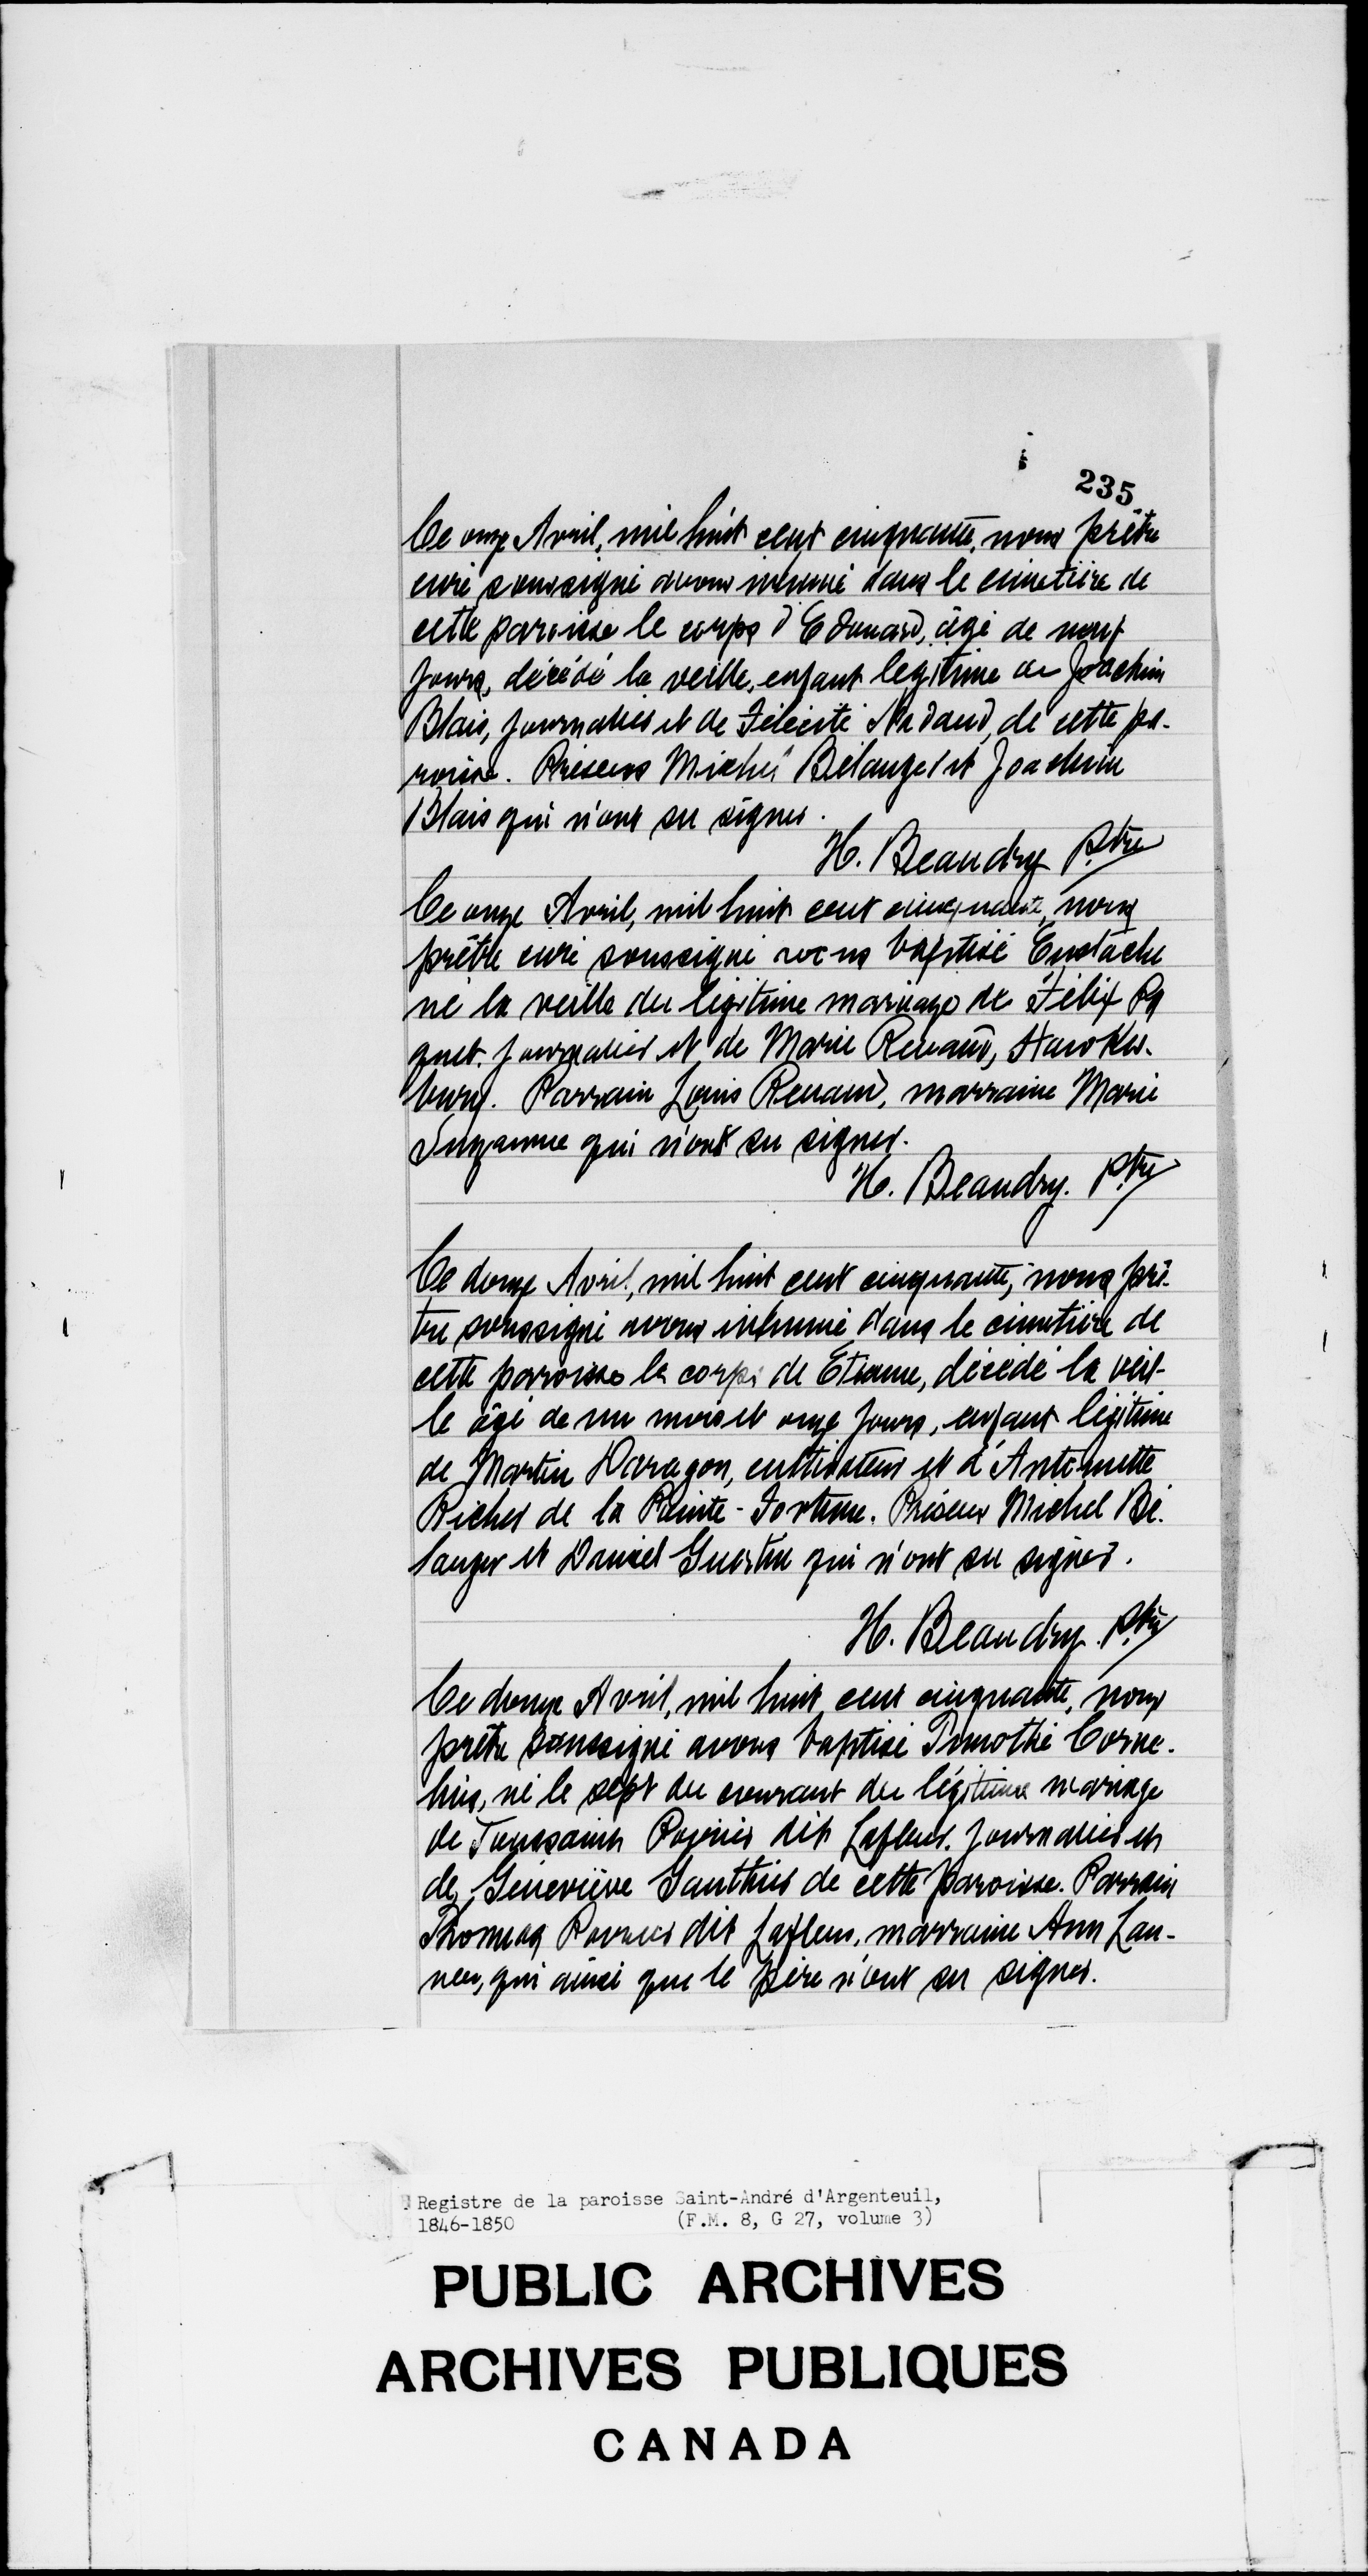 235
Ce onze Avril, mil huit cent cinquante, nous prêtre
curé soussigné avons inhumé dans le cimetière de
cette paroisse le corps d'Edouard, âgé de neuf
jours, décédé la veille, enfant legitime de Joachim
Blais, journalier et de Félicité Nadaud, de cette pa-
roisse. Présens Michel Bélanger et Joachim
Blais qui n'ont su signer.
H. Beaudry Ptre
Ce onze Avril, mil huit cent cinquante, nous
prêtre curé soussigné avons baptisé Eustache
né la veille du légitime mariage de Félix Pa
quet. journalier et de Marie Renaud, Hawkes-
bury. Parrain Louis Renaud, marraine Marie
qui n'ont su signer.
H. Beaudry. Ptre
Ce douze Avril, mil huit cent cinquante, nous prê-
tre soussigné avons inhumé dans le cimetière de
cette paroisse le corps de Etienne, décédé la veil-
le âgé de un mois et onze jours, enfant légitime
de Martin Daragon, cultivateur et d'Antoinette
Richer de la Pointe-Fortune. Présens Michel Bé-
langer et Daniel Guertin qui n'ont su signer.
H. Beaudry. Ptre
Ce douze Avril, mil huit cent cinquante, nous
prêtre soussigné avons baptisé Timothé Corne-
lius, né le sept du courant du légitime mariage
de Toussaint Poirier dit Lafleur. journalier et
de Géneviève Gauthier de cette paroisse. Parrain
Thomas dit Lafleur, marraine Ann Lan-
qui ainsi que le père n'ont su signer.
Registre de la paroisse Saint-André d'Argenteuil,
1846-1850 (F.M. 8, G 27, volume 3)
PUBLIC ARCHIVES
ARCHIVES PUBLIQUES
CANADA